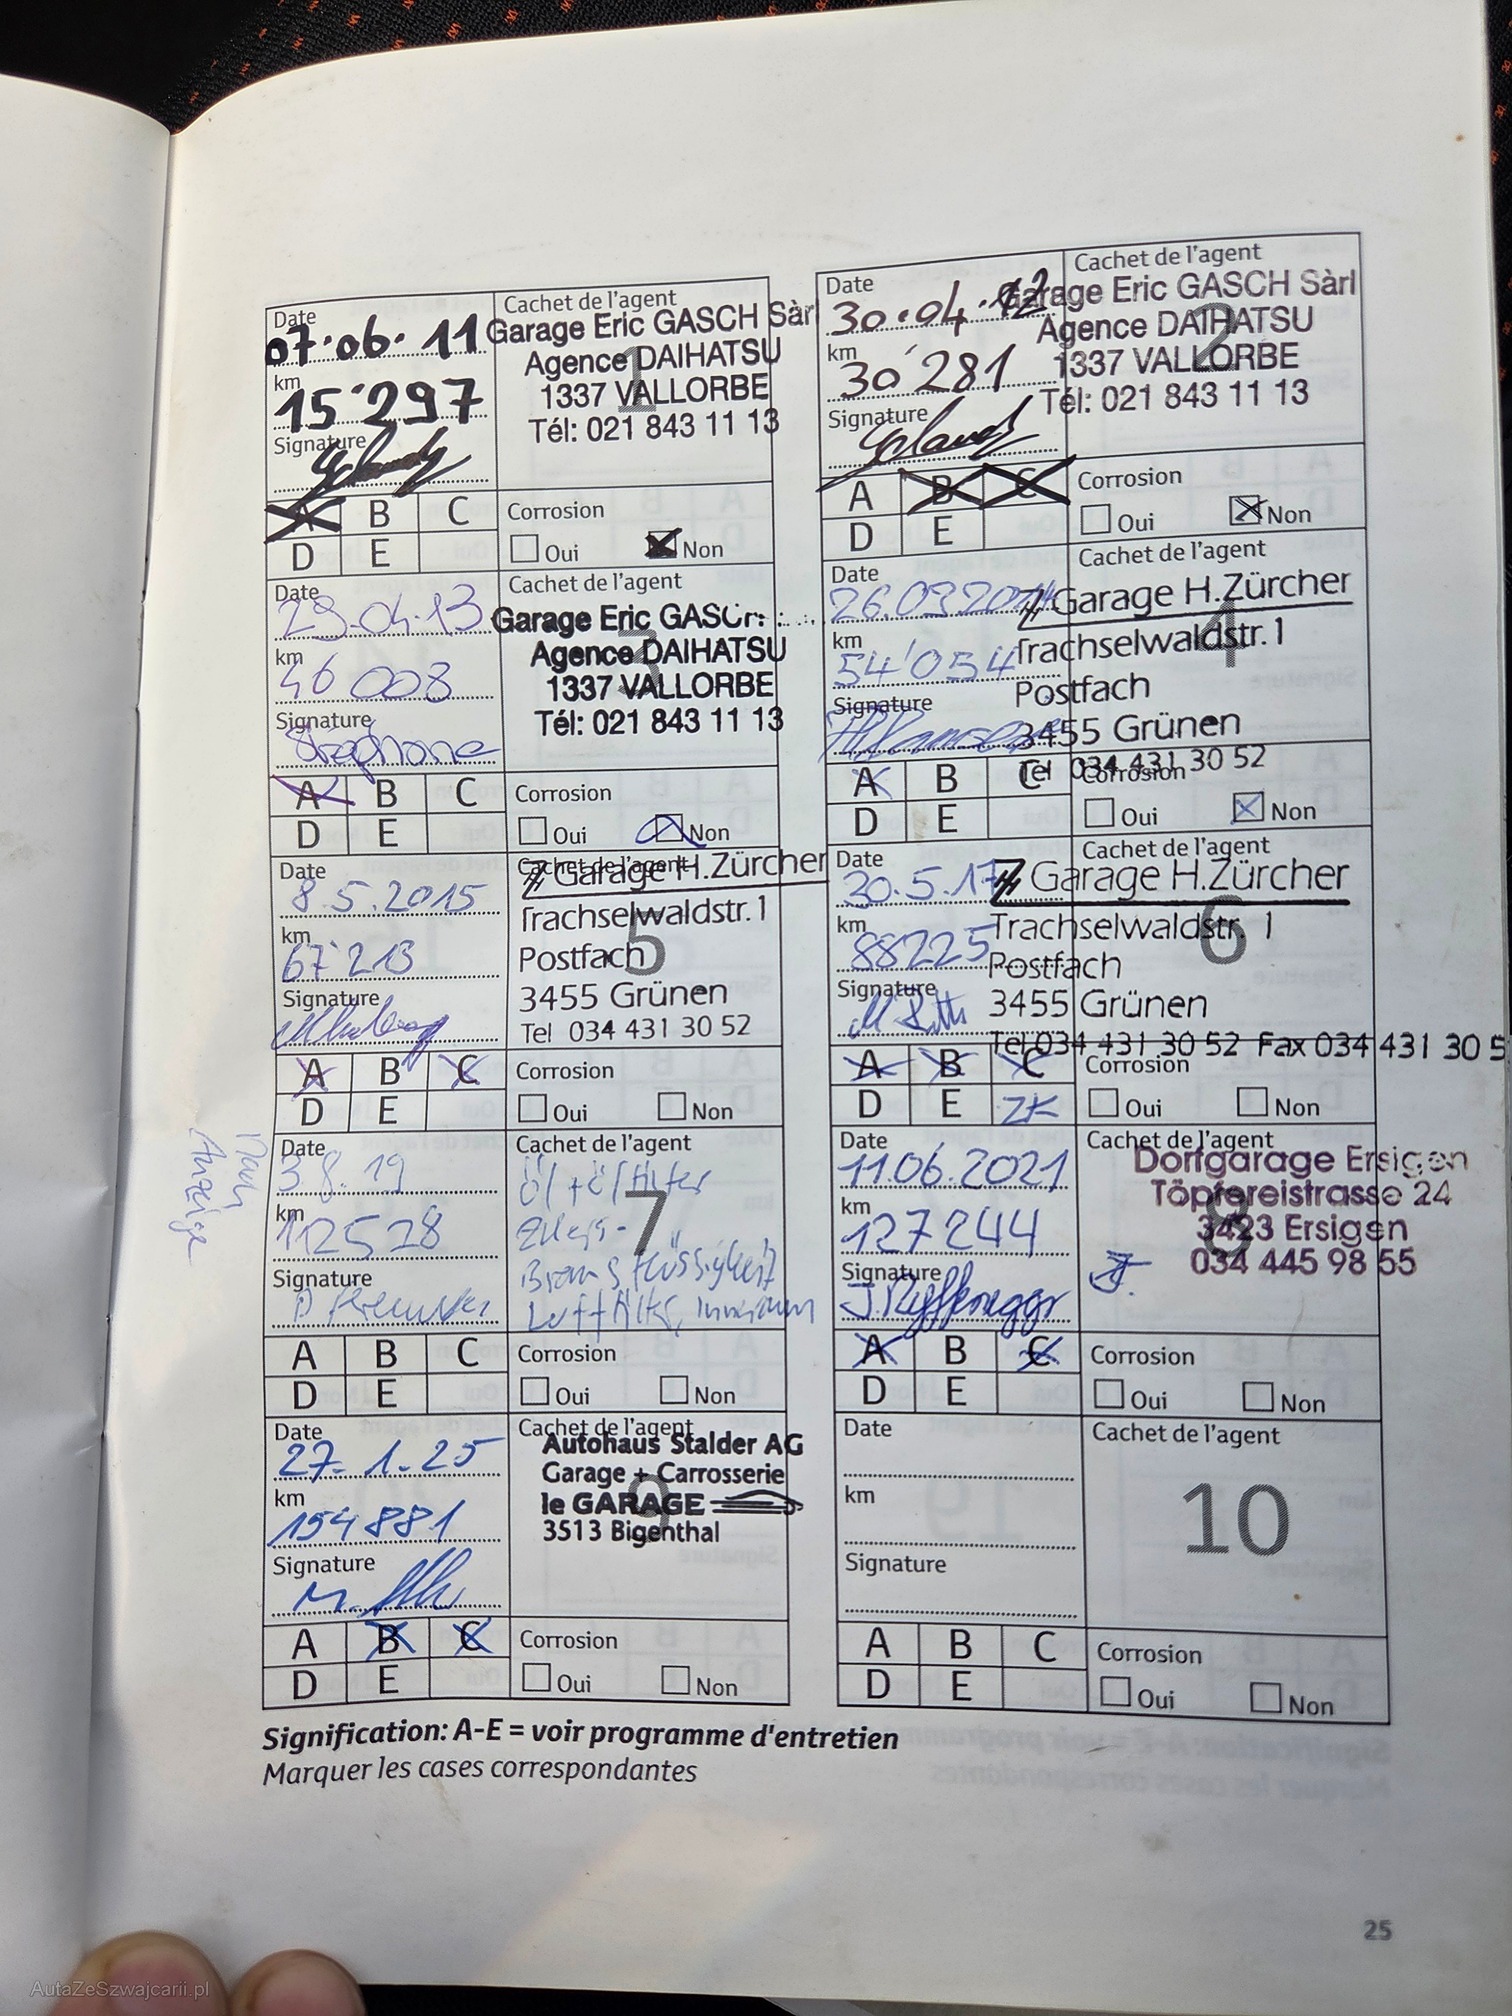 Date
07.06.11
km
15'297
Signature
Cachet de l'agent
Garage Eric GASCH Sàrl
Agence DAIHATSU
1337 VALLORBE
Tél: 021 843 11 13
1
A B C
D E
Corrosion
Oui Non
Date
30.04.12
km
30'281
Signature
Cachet de l'agent
Garage Eric GASCH Sàrl
Agence DAIHATSU
1337 VALLORBE
Tél: 021 843 11 13
2
A B C
D E
Corrosion
Oui Non
Date
29.04.13
km
46 008
Signature
Stephane
Cachet de l'agent
Garage Eric GASCH
Agence DAIHATSU
1337 VALLORBE
Tél: 021 843 11 13
3
A B C
D E
Corrosion
Oui Non
Date
26.03.2014
km
54'054
Signature
Cachet de l'agent
Garage H.Zürcher
Trachselwaldstr. 1
Postfach
3455 Grünen
Tel 034 431 30 52
4
A B C
D E
Corrosion
Oui Non
Date
8.5.2015
km
67'213
Signature
Cachet de l'agent
Garage H.Zürcher
Trachselwaldstr. 1
Postfach
3455 Grünen
Tel 034 431 30 52
5
A B C
D E
Corrosion
Oui Non
Date
30.5.17
km
88225
Signature
Cachet de l'agent
Garage H.Zürcher
Trachselwaldstr. 1
Postfach
3455 Grünen
Tel 034 431 30 52 Fax 034 431 30 5
6
A B C
D E ZK
Corrosion
Oui Non
Nach
Anzeige
Date
3.8.19
km
112528
Signature
Cachet de l'agent
Öl + Ölfilter
Bremsflüssigkeit
Luftfilter, Innenraum
7
A B C
D E
Corrosion
Oui Non
Date
11.06.2021
km
127244
Signature
J. Ryffenegger
Cachet de l'agent
Dorfgarage Ersigen
Töpfereistrasse 24
3423 Ersigen
034 445 98 55
8
A B C
D E
Corrosion
Oui Non
Date
27.1.25
km
154881
Signature
Cachet de l'agent
Autohaus Stalder AG
Garage + Carrosserie
le GARAGE
3513 Bigenthal
9
A B C
D E
Corrosion
Oui Non
Date
km
Signature
Cachet de l'agent
10
A B C
D E
Corrosion
Oui Non
Signification: A-E = voir programme d'entretien
Marquer les cases correspondantes
25
AutaZeSzwajcarii.pl